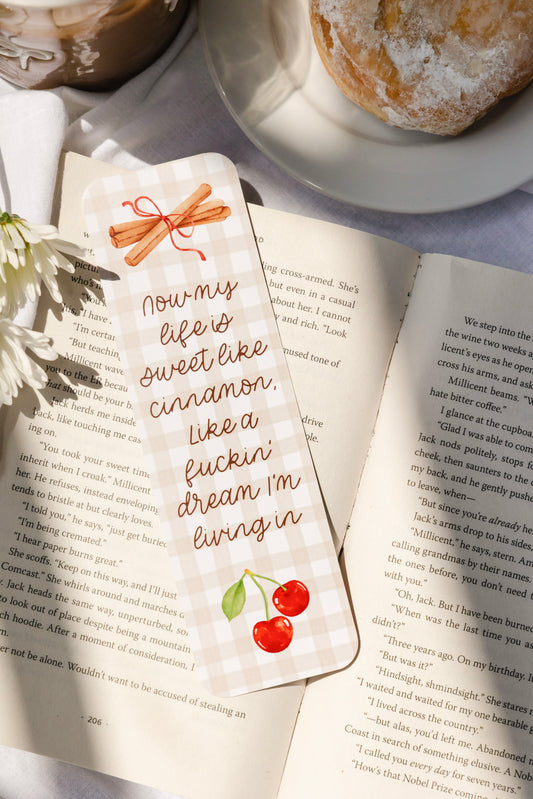 Now my
life is
sweet like
cinnamon,
Like a
fuckin'
dream I'm
living in
cing cross-armed. She's
but even in a casual
about her. I cannot
y and rich. "Look
mused tone of
drive
picture
who's
"You
"I have
"I'm certa
"But teachin
Millicent wave
you to the E
that should be your b
Jack herds me inside
Jack, like touching me ca
ing on.
"You took your sweet time
inherit when I croak." Millicent
her. He refuses, instead enveloping
tends to bristle at but clearly loves.
"I told you," he says, "just get buried
"I'm being cremated."
"I hear paper burns great."
She scoffs. "Keep on this way, and I'll just
Comcast." She whirls around and marches
y. Jack heads the same way, unperturbed, so
to look out of place despite being a mountain
ch hoodie. After a moment of consideration, I
er not be alone. Wouldn't want to be accused of stealing an
206
We step into the
the wine two weeks a
licent's eyes as he open
crosses his arms, and ask
Millicent beams. "W
hate bitter coffee."
I glance at the cupboa
"Glad I was able to com
Jack nods politely, stops fo
cheek, then saunters to the
my back, and he gently pushe
to leave, when—
"But since you're already he
Jack's arms drop to his sides,
"Millicent," he says, stern. Am
calling grandmas by their names.
the ones before, you don't need t
with you."
"Oh, Jack. But I have been burned
"When was the last time you as
didn't?"
"Three years ago. On my birthday. I
"But was it?"
"Hindsight, shmindsight." She stares r
"I waited and waited for my one bearable g
"I lived across the country."
"—but alas, you'd left me. Abandoned m
Coast in search of something elusive. A Nobel
"I called you every day for seven years."
"How's that Nobel Prize coming,